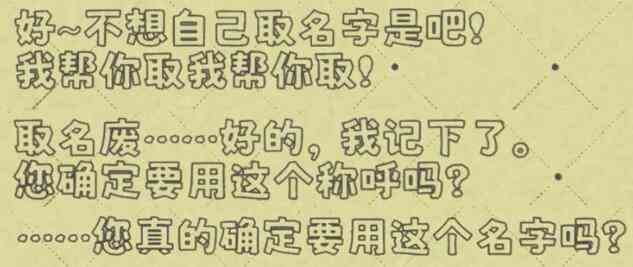 好~不想自己取名字是吧!
我帮你取我帮你取!
取名废……好的，我记下了。
您确定要用这个称呼吗?
……您真的确定要用这个名字吗?